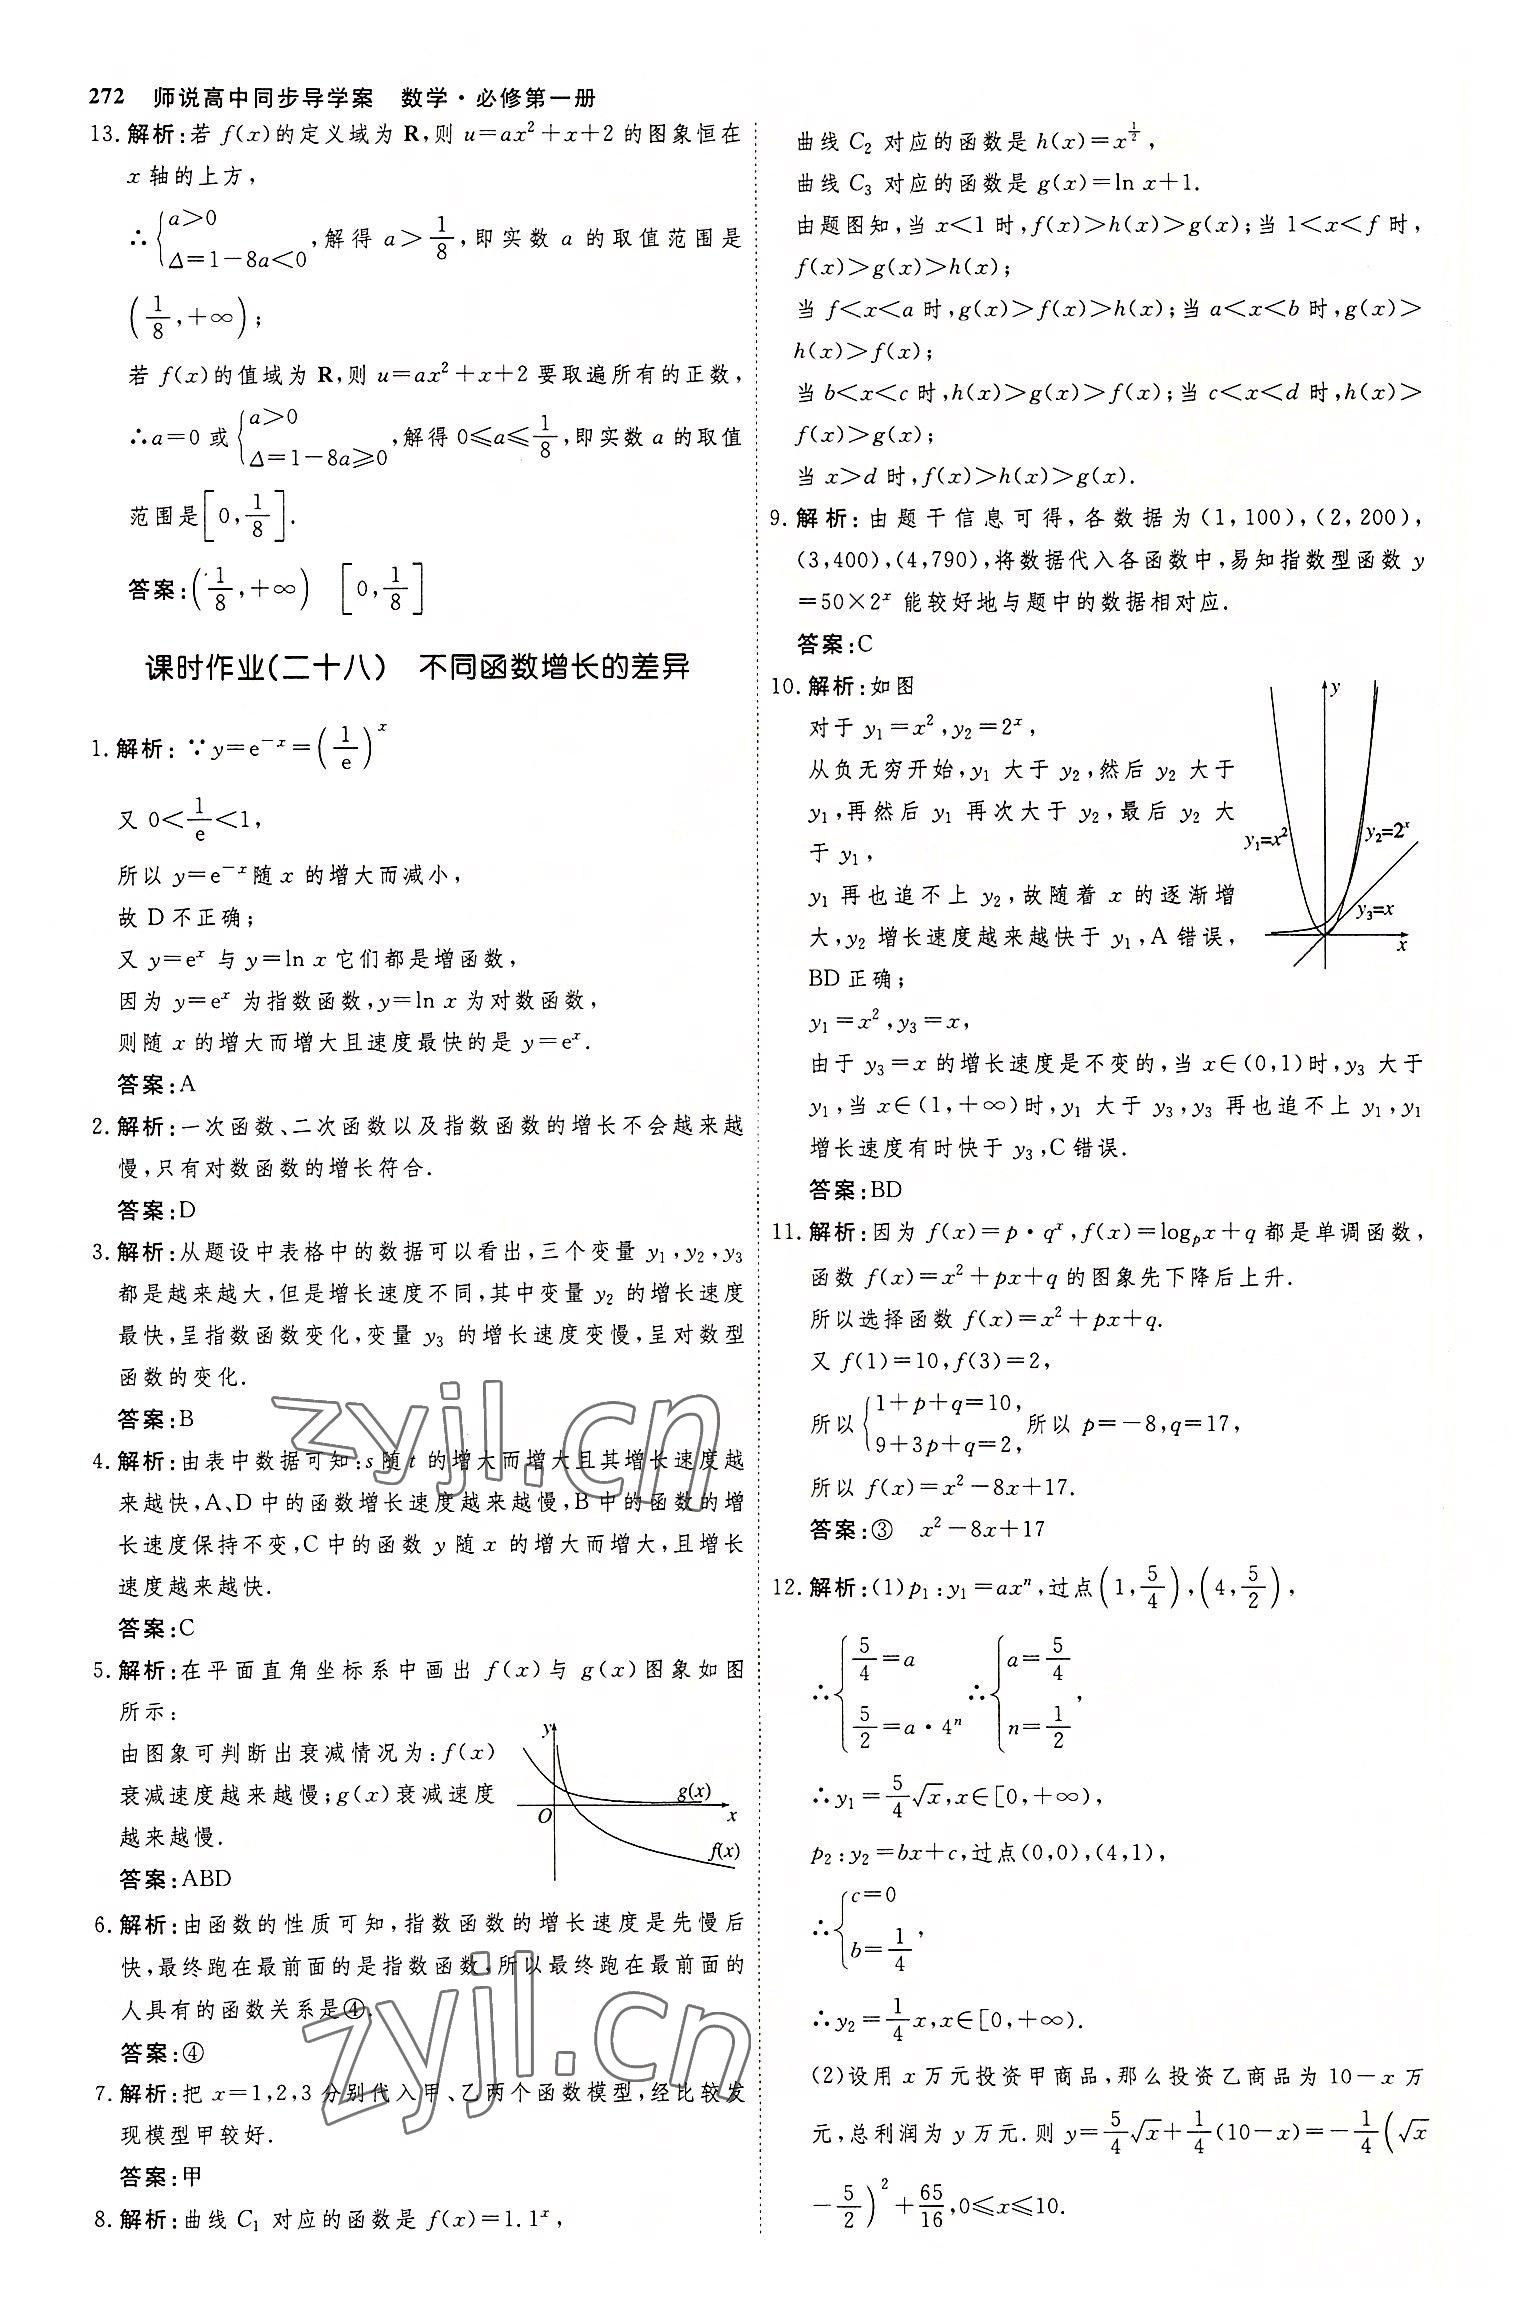 272 师说高中同步导学案 数学·必修第一册
13.解析:若 f(x)的定义域为 R,则 u=ax²+x+2 的图象恒在
x 轴的上方,
∴{a>0
Δ=1-8a<0,解得 a>1/8,即实数 a 的取值范围是
(1/8,+∞);
若 f(x)的值域为 R,则 u=ax²+x+2 要取遍所有的正数,
∴a=0 或{a>0
Δ=1-8a≥0,解得 0≤a≤1/8,即实数 a 的取值
范围是[0,1/8].
答案:(1/8,+∞) [0,1/8]
课时作业(二十八) 不同函数增长的差异
1.解析:∵y=e⁻ˣ=(1/e)ˣ
又 0<1/e<1,
所以 y=e⁻ˣ随 x 的增大而减小,
故 D 不正确;
又 y=eˣ 与 y=ln x 它们都是增函数,
因为 y=eˣ 为指数函数,y=ln x 为对数函数,
则随 x 的增大而增大且速度最快的是 y=eˣ.
答案:A
2.解析:一次函数、二次函数以及指数函数的增长不会越来越
慢,只有对数函数的增长符合.
答案:D
3.解析:从题设中表格中的数据可以看出,三个变量 y₁,y₂,y₃
都是越来越大,但是增长速度不同,其中变量 y₂ 的增长速度
最快,呈指数函数变化,变量 y₃ 的增长速度变慢,呈对数型
函数的变化.
答案:B
4.解析:由表中数据可知:s随t 的增大而增大且其增长速度越
来越快,A、D中的函数增长速度越来越慢,B 中的函数的增
长速度保持不变,C中的函数 y 随 x 的增大而增大,且增长
速度越来越快.
答案:C
5.解析:在平面直角坐标系中画出 f(x)与 g(x)图象如图
所示:
由图象可判断出衰减情况为:f(x)
衰减速度越来越慢;g(x)衰减速度
越来越慢.
y
g(x)
O x
f(x)
答案:ABD
6.解析:由函数的性质可知,指数函数的增长速度是先慢后
快,最终跑在最前面的是指数函数,所以最终跑在最前面的
人具有的函数关系是④.
答案:④
7.解析:把 x=1,2,3 分别代入甲、乙两个函数模型,经比较发
现模型甲较好.
答案:甲
8.解析:曲线 C₁ 对应的函数是 f(x)=1.1ˣ,
曲线 C₂ 对应的函数是 h(x)=x^(1/2),
曲线 C₃ 对应的函数是 g(x)=ln x+1.
由题图知,当 x<1 时,f(x)>h(x)>g(x);当 1<x<f 时,
f(x)>g(x)>h(x);
当 f<x<a 时,g(x)>f(x)>h(x);当 a<x<b 时,g(x)>
h(x)>f(x);
当 b<x<c 时,h(x)>g(x)>f(x);当 c<x<d 时,h(x)>
f(x)>g(x);
当 x>d 时,f(x)>h(x)>g(x).
9.解析:由题干信息可得,各数据为(1,100),(2,200),
(3,400),(4,790),将数据代入各函数中,易知指数型函数 y
=50×2ˣ 能较好地与题中的数据相对应.
答案:C
10.解析:如图
对于 y₁=x²,y₂=2ˣ,
从负无穷开始,y₁ 大于 y₂,然后 y₂ 大于
y₁,再然后 y₁ 再次大于 y₂,最后 y₂ 大
于 y₁,
y₁ 再也追不上 y₂,故随着 x 的逐渐增
大,y₂ 增长速度越来越快于 y₁,A 错误,
BD 正确;
y
y₁=x² y₂=2ˣ
y₃=x
x
y₁=x²,y₃=x,
由于 y₃=x 的增长速度是不变的,当 x∈(0,1)时,y₃ 大于
y₁,当 x∈(1,+∞)时,y₁ 大于 y₃,y₃ 再也追不上 y₁,y₁
增长速度有时快于 y₃,C 错误.
答案:BD
11.解析:因为 f(x)=p·qˣ,f(x)=logₚx+q 都是单调函数,
函数 f(x)=x²+px+q 的图象先下降后上升.
所以选择函数 f(x)=x²+px+q.
又 f(1)=10,f(3)=2,
所以{1+p+q=10,
9+3p+q=2,所以 p=-8,q=17,
所以 f(x)=x²-8x+17.
答案:③ x²-8x+17
12.解析:(1)p₁:y₁=axⁿ,过点(1,5/4),(4,5/2),
∴{5/4=a
5/2=a·4ⁿ ∴{a=5/4
n=1/2,
∴y₁=5/4√x,x∈[0,+∞),
p₂:y₂=bx+c,过点(0,0),(4,1),
∴{c=0
b=1/4,
∴y₂=1/4x,x∈[0,+∞).
(2)设用 x 万元投资甲商品,那么投资乙商品为 10-x 万
元,总利润为 y 万元.则 y=5/4√x+1/4(10-x)=-1/4(√x
-5/2)²+65/16,0≤x≤10.
zyjl.cn
zyjl.cn